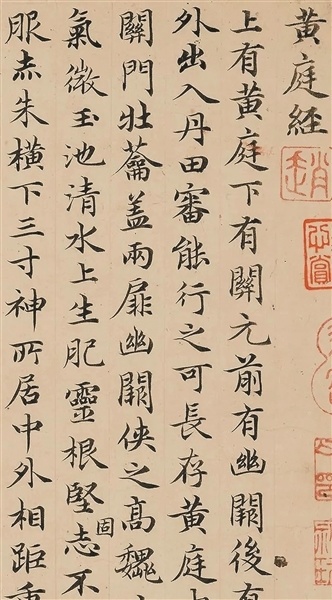 黄庭經
上有黄庭下有關元前有幽闕後有
外出入丹田審能行之可長存黄庭
關門壯蘥盖兩扉幽闕俠之高巍
氣微玉池清水上生肥靈根堅固志不
服赤朱横下三寸神所居中外相距